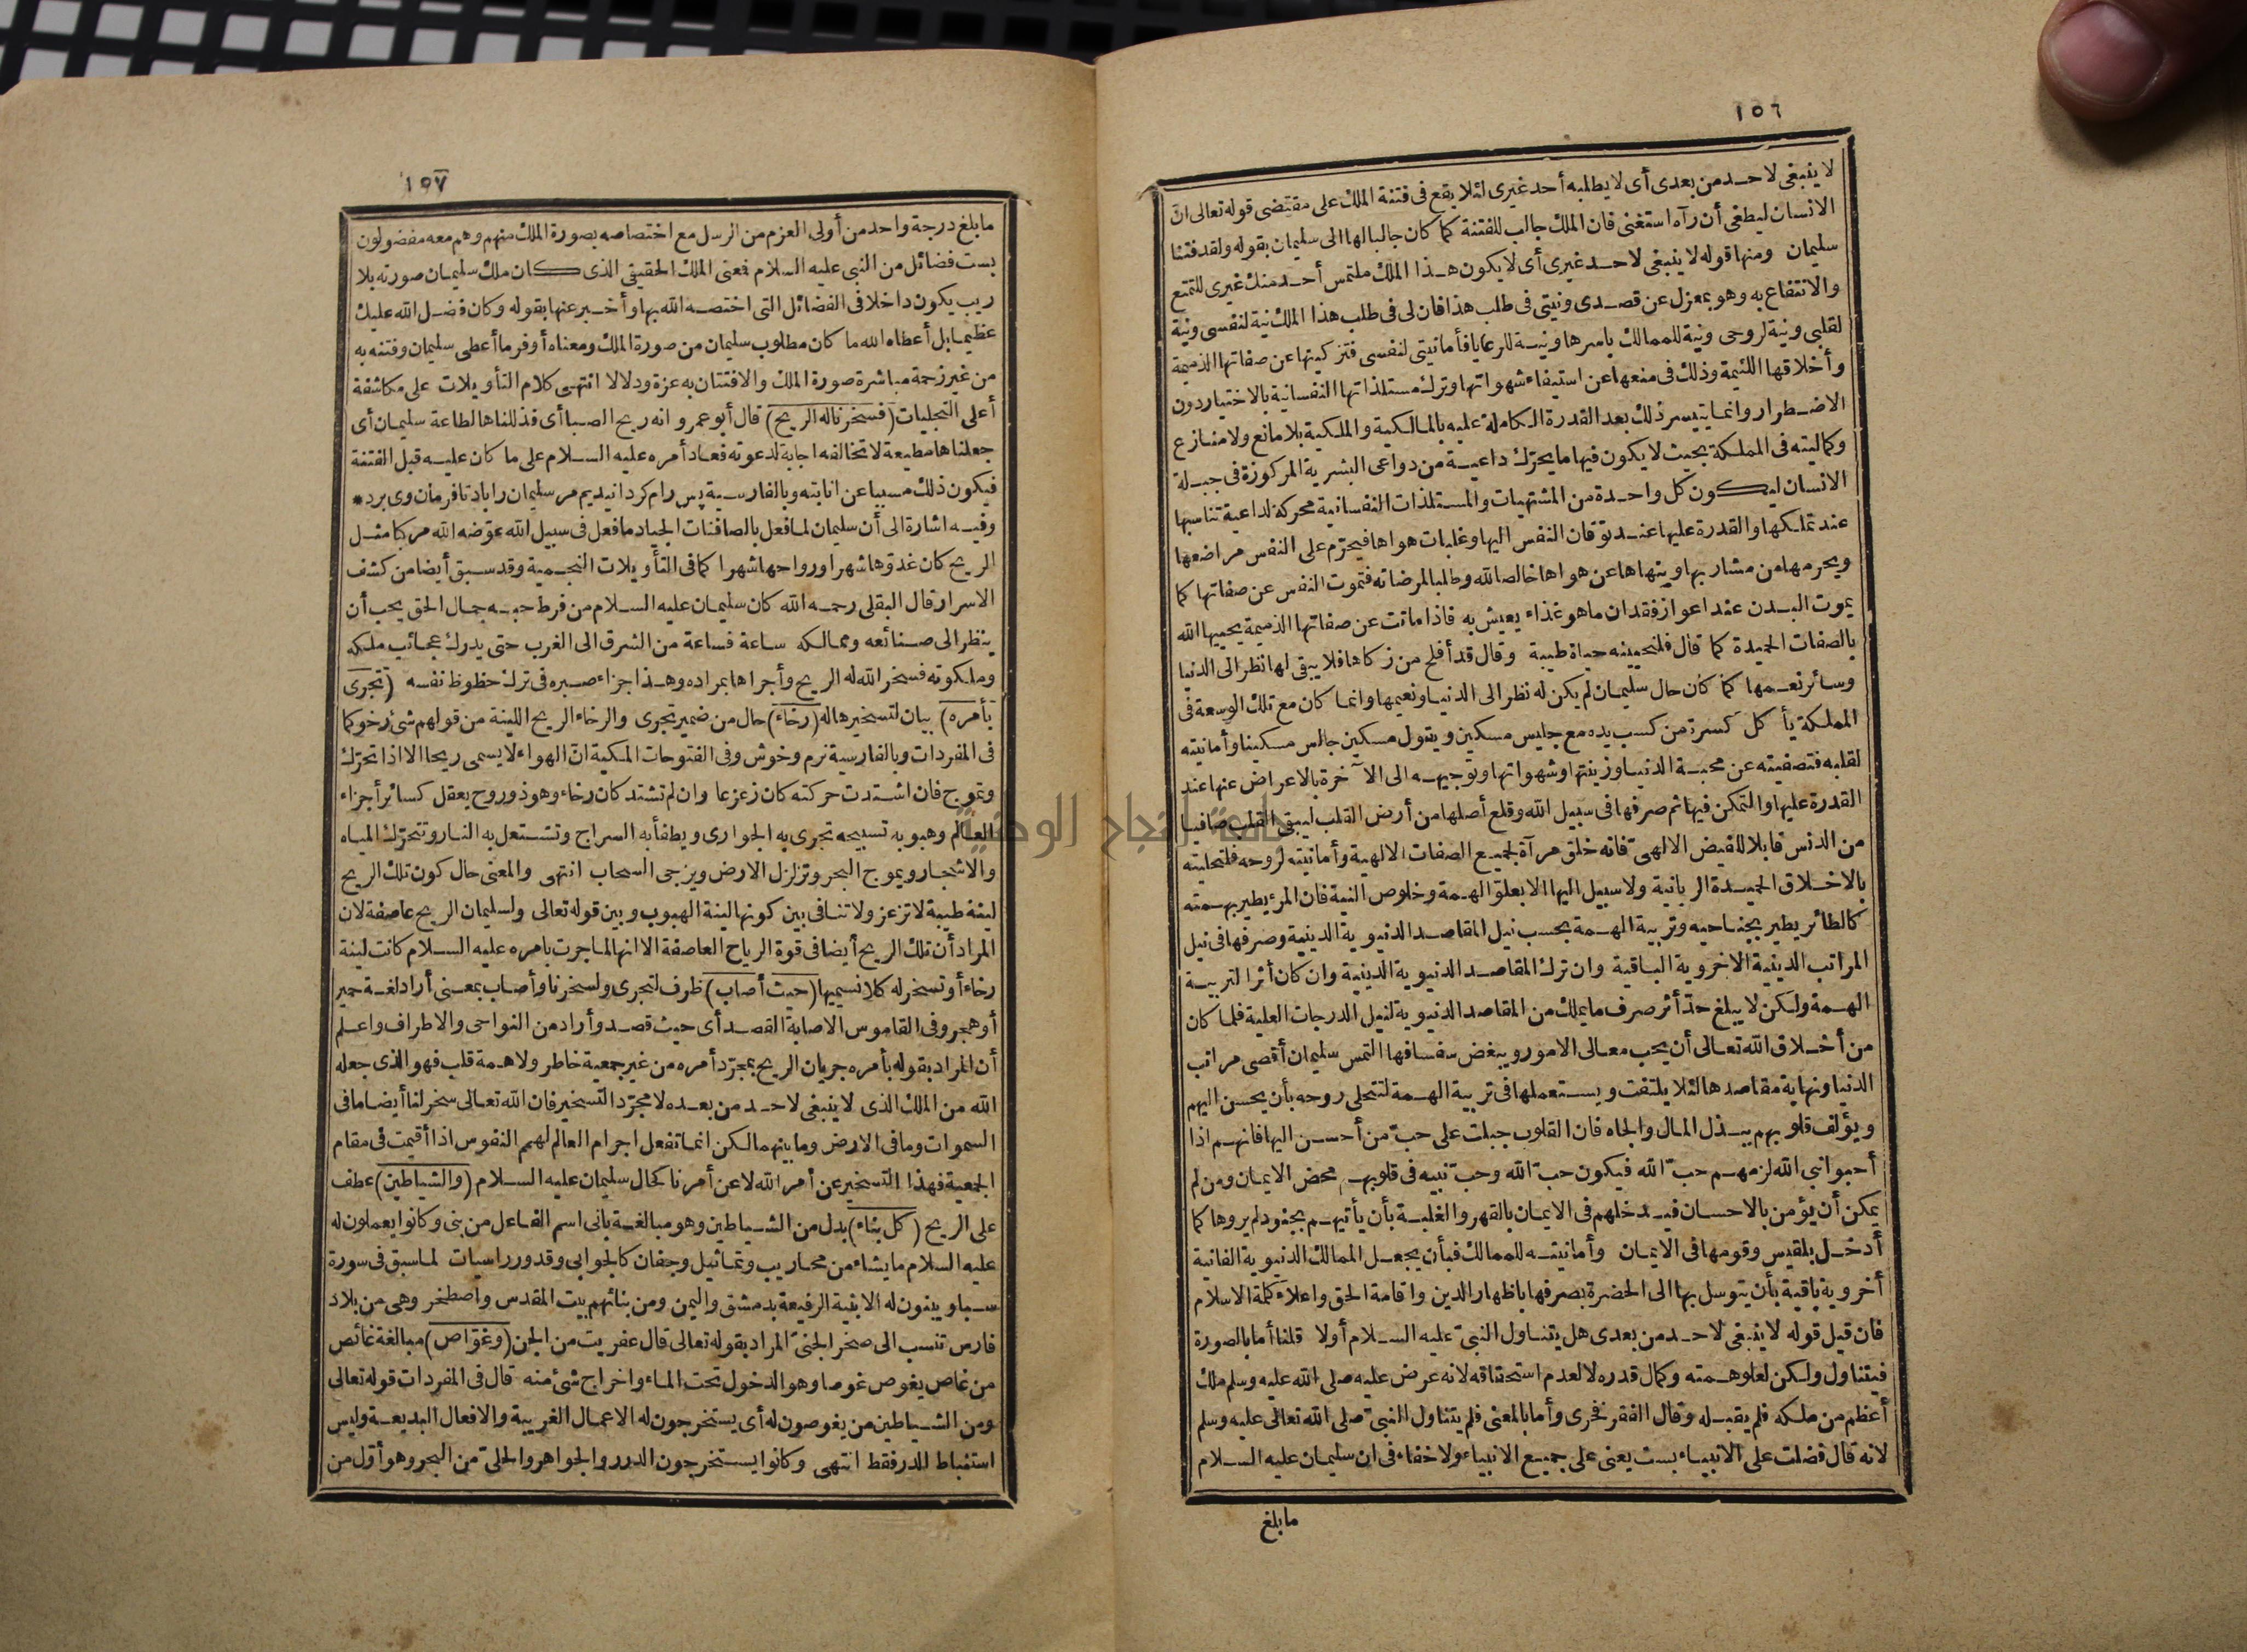 ١٥٦
لا ينبغى لاحد من بعدى أى لا يطلبه أحد غيرى لئلا يقع فى فتنة الملك على مقتضى قوله تعالى ان
الانسان ليطغى أن رآه استغنى فان الملك جالب للفتنة كما كان جالبا لها الى سليمان بقوله ولقد فتنا
سليمان ومنها قوله لا ينبغى لاحد غيرى أى لا يكون هذا الملك ملتمس أحد منك غيرى للتمتع
والانتفاع به وهو بمعزل عن قصدى ونيتى فى طلب هذا فان لى فى طلب هذا الملك نية لنفسى ونية
لقلبى ونية لروحى ونية للممالك باسرها ونية للرعايا فأما نيتى لنفسى فتزكيتها عن صفاتها الذميمة
وأخلاقها اللئيمة وذلك فى منعها عن استيفاء شهواتها وترك مستلذاتها النفسانية بالاختيار دون
الاضطرار وانما يتيسر ذلك بعد القدرة الكاملة عليه بالمالكية والملكية بلا مانع ولا منازع
وكماليته فى المملكة بحيث لا يكون فيها ما يحرّك داعية من دواعى البشرية المركوزة فى جبلة
الانسان ليكون كل واحدة من المشتهيات والمستلذات النفسانية محركة لداعية تناسبها
عند تملكها والقدرة عليها عند توقان النفس اليها وغلبات هواها فيحرّم على النفس مراضعها
ويحرمها من مشاربها وينهاها عن هواها خالصا لله وطلبا لمرضاته فتموت النفس عن صفاتها كما
يموت البدن عند اعواز فقدان ما هو غذاء يعيش به فاذا ماتت عن صفاتها الذميمة يحييها الله
بالصفات الحميدة كما قال فلنحيينه حياة طيبة وقال قد أفلح من زكاها فلا يبقى لها نظر الى الدنيا
وسائر نعمها كما كان حال سليمان لم يكن له نظر الى الدنيا ونعيمها وانما كان مع تلك الوسعة فى
المملكة يأكل كسرة من كسب يده مع جليس مسكين ويقول مسكين جالس مسكينا وأما نيته
لقلبه فتصفيته عن محبة الدنيا وزينتها وشهواتها وتوجيهه الى الآخرة بالاعراض عنها عند
القدرة عليها والتمكن فيها ثم صرفها فى سبيل الله وقلع أصلها من أرض القلب ليبقى القلب صافيا
من الدنس قابلا للفيض الالهىّ فانه خلق مرآة لجميع الصفات الالهية وأما نيته لروحه فلتحليته
بالاخلاق الحميدة الربانية ولا سبيل اليها الا بعلوّ الهمة وخلوص النية فان المرء يطير بهمته
كالطائر يطير بجناحيه وتربية الهمة بحسب نيل المقاصد الدنيوية الدينية وصرفها فى نيل
المراتب الدينية الاخروية الباقية وان ترك المقاصد الدنيوية الدينية وان كان أثرا لتربية
الهمة ولكن لا يبلغ حدّ أثر صرف ما يملك من المقاصد الدنيوية لنيل الدرجات العلية فلما كان
من أخلاق الله تعالى أن يحب معالى الامور ويبغض سفسافها التمس سليمان أقصى مراتب
الدنيا ونهاية مقاصدها لئلا يلتفت ويستعملها فى تربية الهمة لتتحلى روحه بأن يحسن اليهم
ويؤلف قلوبهم ببذل المال والجاه فان القلوب جبلت على حبّ من أحسن اليها فانهم اذا
أحبوا نبى الله لزمهم حبّ الله فيكون حبّ الله وحبّ نبيه فى قلوبهم محض الايمان ومن لم
يمكن أن يؤمن بالاحسان فيدخلهم فى الايمان بالقهر والغلبة بأن يأتيهم بجنود لم يروها كما
أدخل بلقيس وقومها فى الايمان وأما نيته للممالك فبأن يجعل الممالك الدنيوية الفانية
أخروية باقية بأن يتوسل بها الى الحضرة بصرفها باظهار الدين واقامة الحق واعلاء كلمة الاسلام
فان قيل قوله لا ينبغى لاحد من بعدى هل يتناول النبىّ عليه السلام أولا قلنا أما بالصورة
فيتناول ولكن لعلو همته وكمال قدره لا لعدم استحقاقه لانه عرض عليه صلى الله عليه وسلم ملك
أعظم من ملكه فلم يقبله وقال الفقر فخرى وأما بالمعنى فلم يتناول النبىّ صلى الله تعالى عليه وسلم
لانه قال فضلت على الانبياء بست يعنى على جميع الانبياء ولا خفاء فى ان سليمان عليه السلام
ما بلغ
١٥٧
ما بلغ درجة واحد من أولى العزم من الرسل مع اختصاصه بصورة الملك منهم وهم معه مفضولون
بست فضائل من النبى عليه السلام فعنى الملك الحقيقى الذى كان ملك سليمان صورته بلا
ريب يكون داخلا فى الفضائل التى اختصه الله بها وأخبر عنها بقوله وكان فضل الله عليك
عظيما بل أعطاه الله ما كان مطلوب سليمان من صورة الملك ومعناه أوفر ما أعطى سليمان وفتنه به
من غير زحمة مباشرة صورة الملك والافتتان به عزة ودلالا انتهى كلام التأويلات على مكاشفة
أعلى التجليات (فسخرنا له الريح) قال أبو عمرو انه ريح الصبا أى فذللناها لطاعة سليمان أى
جعلناها مطيعة لا تخالفه اجابة لدعوته فعاد أمره عليه السلام على ما كان عليه قبل الفتنة
فيكون ذلك مسببا عن انابته وبالفارسية پس رام كردانيديم مر سليمان را باد تا فرمان وى برد *
وفيه اشارة الى أن سليمان لما فعل بالصافنات الجياد ما فعل فى سبيل الله عوّضه الله مركبا مثل
الريح كان غدوّها شهرا ورواحها شهرا كما فى التأويلات النجمية وقد سبق أيضا من كشف
الاسرار قال البقلى رحمه الله كان سليمان عليه السلام من فرط حبه جمال الحق يحب أن
ينظر الى صنائعه وممالكه ساعة فساعة من الشرق الى الغرب حتى يدرك عجائب ملكه
وملكوته فسخر الله له الريح وأجراها بمراده وهذا جزاء صبره فى ترك حظوظ نفسه (تجرى
بأمره) بيان لتسخيرها له (رخاء) حال من ضمير تجرى والرخاء الريح اللينة من قولهم شئ رخو كما
فى المفردات وبالفارسية نرم وخوش وفى الفتوحات المكية ان الهواء لا يسمى ريحا الا اذا تحرّك
وتموج فان اشتدت حركته كان زعزعا وان لم تشتد كان رخاء وهو ذو روح يعقل كسائر أجزاء
العالم وهبوبه تسبيحه تجرى به الجوارى ويطفأ به السراج وتشتعل به النار وتتحرّك المياه
والاشجار ويموج البحر وتزلزل الارض ويزجى السحاب انتهى والمعنى حال كون تلك الريح
لينة طيبة لا تزعزع ولا تنافى بين كونها لينة الهبوب وبين قوله تعالى ولسليمان الريح عاصفة لان
المراد أن تلك الريح أيضا فى قوة الرياح العاصفة الا انها لما جرت بامره عليه السلام كانت لينة
رخاء أو تسخر له كلا نسيميها (حيث أصاب) ظرف لتجرى ولسخرنا وأصاب بمعنى أراد لغة حمير
أو هجر وفى القاموس الاصابة القصد أى حيث قصد وأراد من النواحى والاطراف واعلم
أن المراد بقوله بأمره جريان الريح بمجرّد أمره من غير جمعية خاطر ولا همة قلب فهو الذى جعله
الله من الملك الذى لا ينبغى لاحد من بعده لا مجرّد التسخير فان الله تعالى سخر لنا أيضا ما فى
السموات وما فى الارض وما بينهما لكن انما تفعل اجرام العالم لهمم النفوس اذا أقيمت فى مقام
الجمعية فهذا التسخير عن أمر الله لا عن أمرنا كحال سليمان عليه السلام (والشياطين) عطف
على الريح (كل بناء) بدل من الشياطين وهو مبالغة بانى اسم الفاعل من بنى وكانوا يعملون له
عليه السلام ما يشاء من محاريب وتماثيل وجفان كالجوابى وقدور راسيات لما سبق فى سورة
سبا ويبنون له الابنية الرفيعة بدمشق واليمن ومن بنائهم بيت المقدس واصطخر وهى من بلاد
فارس تنسب الى صخر الجنىّ المراد بقوله تعالى قال عفريت من الجن (وغوّاص) مبالغة غائص
من غاص يغوص غوصا وهو الدخول تحت الماء واخراج شئ منه قال فى المفردات قوله تعالى
ومن الشياطين من يغوصون له أى يستخرجون له الاعمال الغريبة والافعال البديعة وليس
استنباط للدر فقط انتهى وكانوا يستخرجون الدرر والجواهر والحلىّ من البحر وهو أوّل من
جامعة النجاح الوطنية